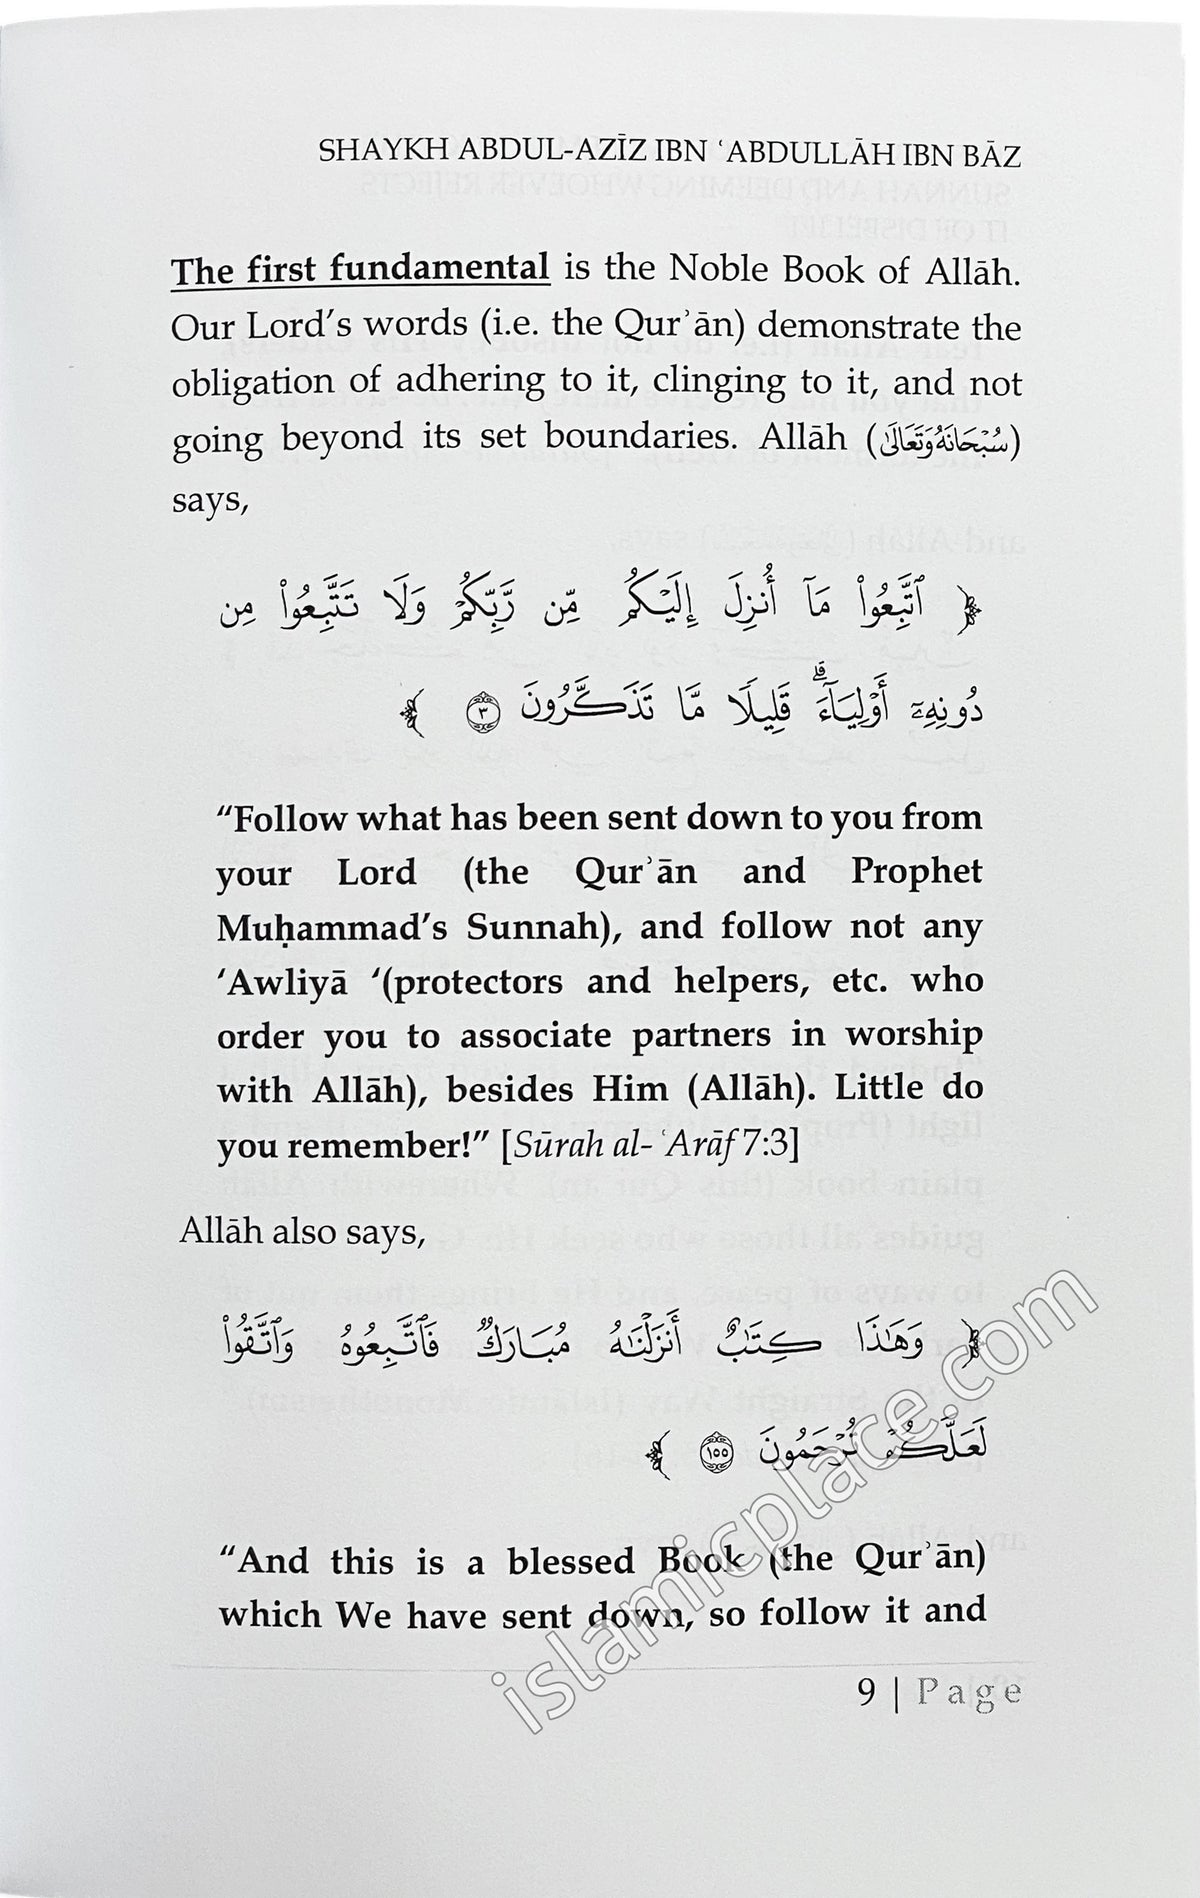 SHAYKH ABDUL-AZĪZ IBN ʿABDULLĀH IBN BĀZ
The first fundamental is the Noble Book of Allāh.
Our Lord’s words (i.e. the Qurʾān) demonstrate the
obligation of adhering to it, clinging to it, and not
going beyond its set boundaries. Allāh (سُبْحَانَهُ وَتَعَالَى)
says,
﴿ ٱتَّبِعُوا۟ مَآ أُنزِلَ إِلَيْكُم مِّن رَّبِّكُمْ وَلَا تَتَّبِعُوا۟ مِن
دُونِهِۦٓ أَوْلِيَآءَ ۗ قَلِيلًا مَّا تَذَكَّرُونَ ٣ ﴾
“Follow what has been sent down to you from
your Lord (the Qurʾān and Prophet
Muḥammad’s Sunnah), and follow not any
‘Awliyā ‘(protectors and helpers, etc. who
order you to associate partners in worship
with Allāh), besides Him (Allāh). Little do
you remember!” [Sūrah al- ʿArāf 7:3]
Allāh also says,
﴿ وَهَـٰذَا كِتَـٰبٌ أَنزَلْنَـٰهُ مُبَارَكٌ فَٱتَّبِعُوهُ وَٱتَّقُوا۟
لَعَلَّكُمْ تُرْحَمُونَ ١٥٥ ﴾
“And this is a blessed Book (the Qurʾān)
which We have sent down, so follow it and
9 | Page
islamicplace.com